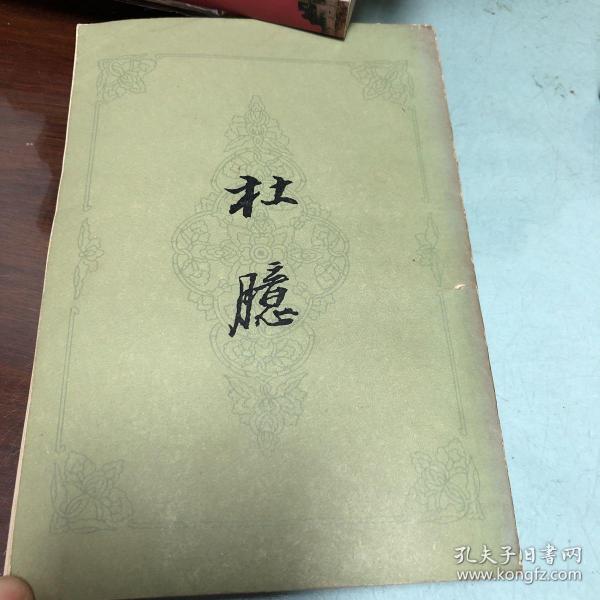 杜
臆
孔夫子旧書网
www.kongfz.com